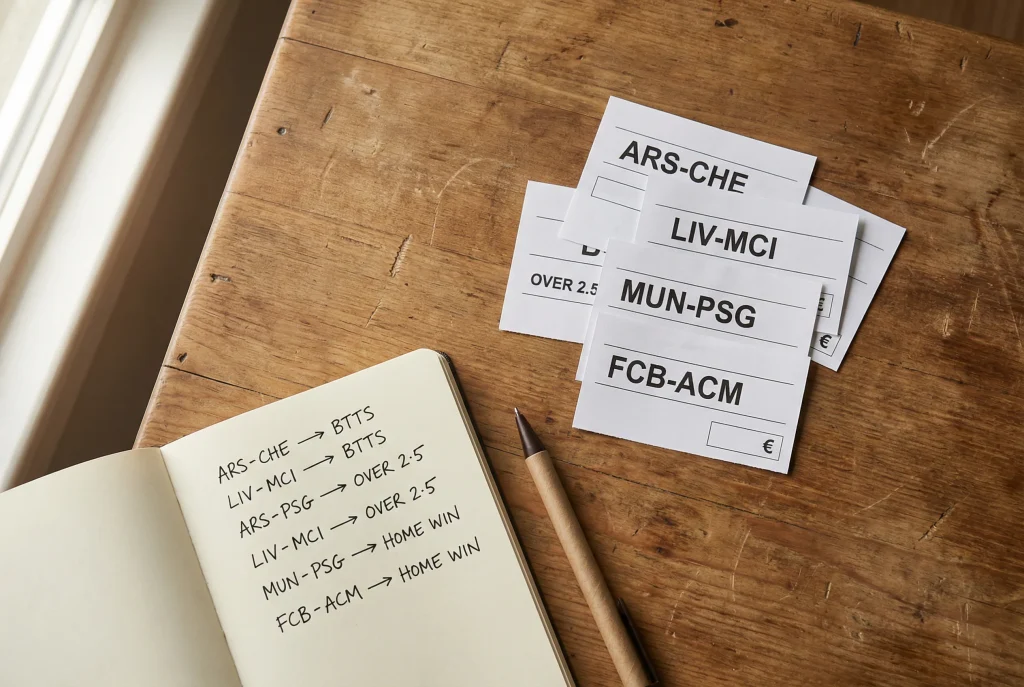 ARS-CHE
LIV-MCI
OVER 2.5
MUN-PSG
€
FCB-ACM
€
ARS-CHE → BTTS
LIV-MCI → BTTS
ARS-PSG → OVER 2.5
LIV-MCI → OVER 2.5
MUN-PSG → HOME WIN
FCB-ACM → HOME WIN